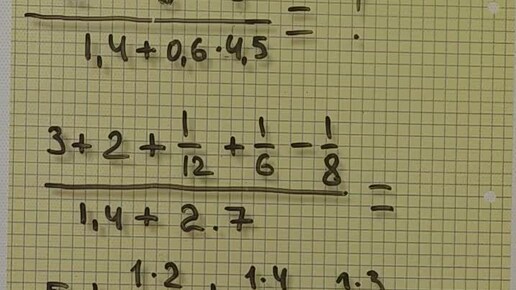 = ?
1,4 + 0,6 · 4,5
3 + 2 + 1/12 + 1/6 - 1/8
1,4 + 2.7 =
1·2 1·4 1·3